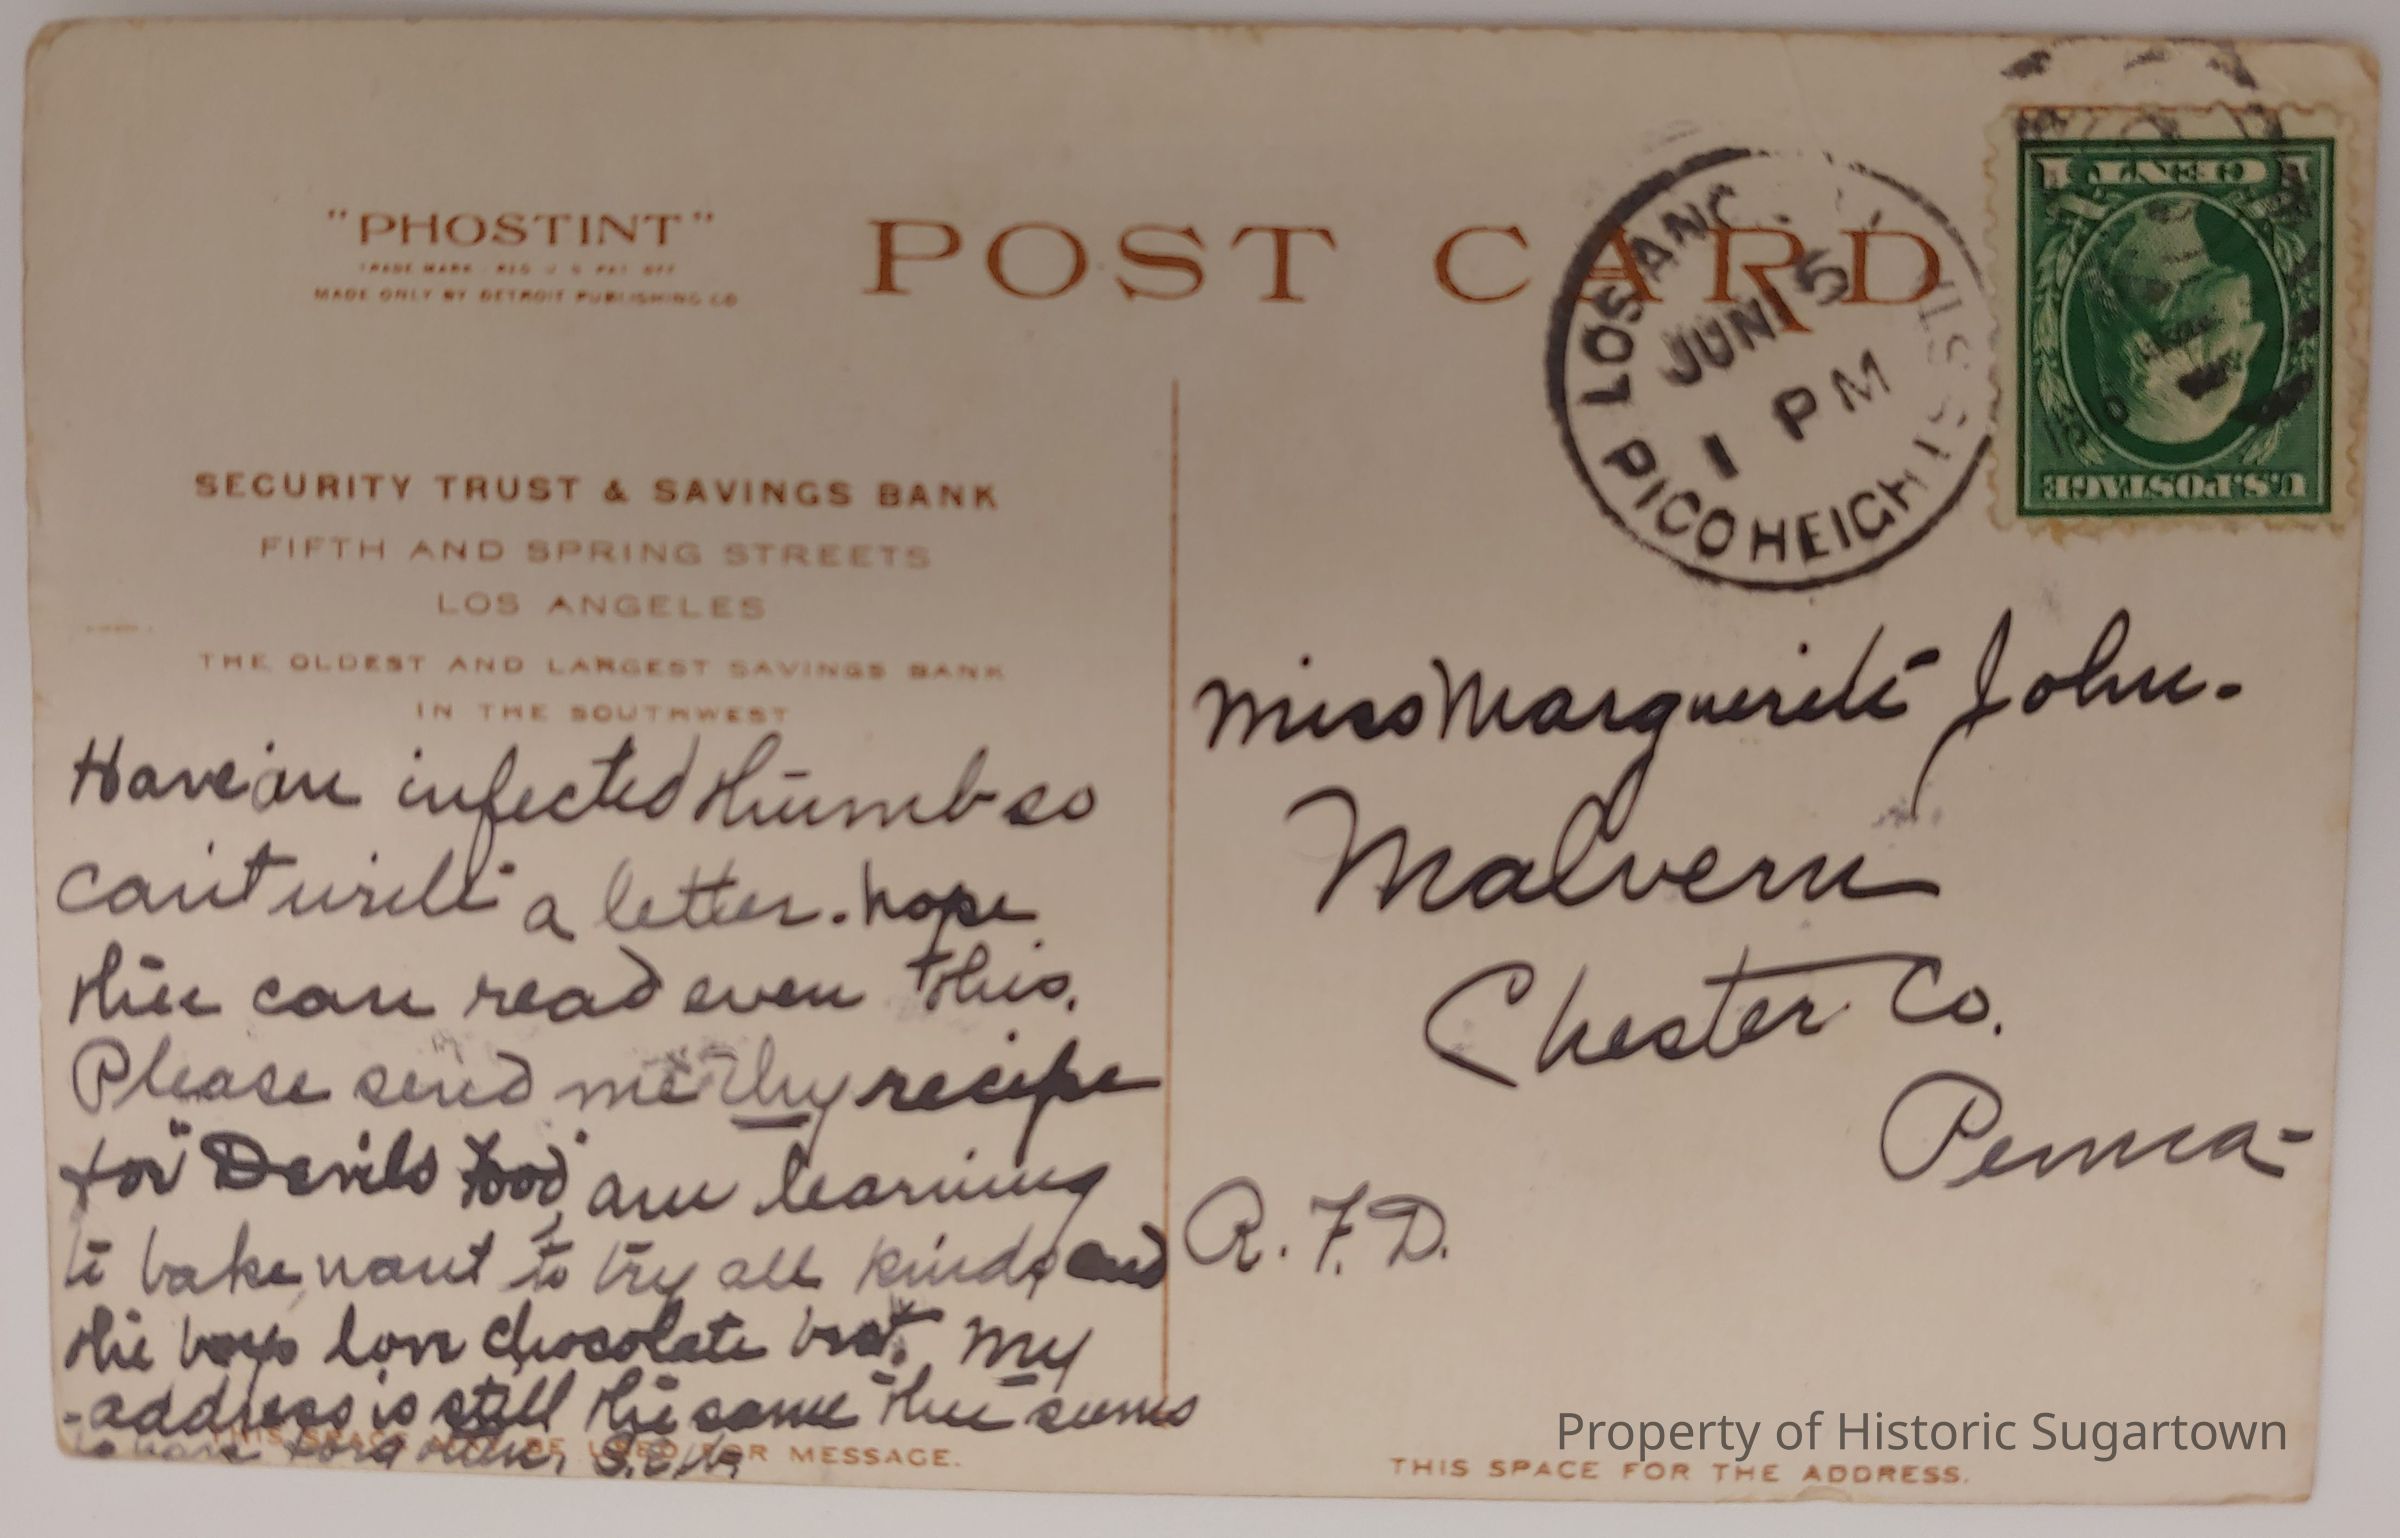 "PHOSTINT"
TRADE MARK REG U S PAT OFF
MADE ONLY BY DETROIT PUBLISHING CO
POST CARD
LOS ANG
JUN 5
1 PM
PICO HEIGHTS STA
1 CENT 1
U.S. POSTAGE
SECURITY TRUST & SAVINGS BANK
FIFTH AND SPRING STREETS
LOS ANGELES
THE OLDEST AND LARGEST SAVINGS BANK
IN THE SOUTHWEST
Have an infected thumb so
can't write a letter. hope
thee can read even this.
Please send me thy recipe
for "Devils Food" am learning
to bake, want to try all kinds and
the boys love chocolate best. My
address is still the same thee seems
to have
S.E.W.
THIS SPACE MAY BE USED FOR MESSAGE.
Miss Marguerite John.
Malvern
Chester Co.
Penna-
R.F.D.
THIS SPACE FOR THE ADDRESS.
Property of Historic Sugartown